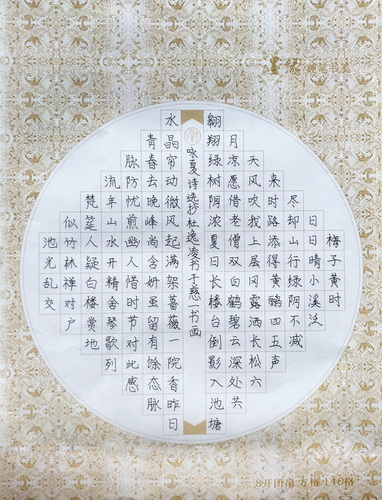 墨缘 硬笔书法
梅子黄时
日日晴小溪泛
尽却山行绿阴不减
来时路添得黄鹂四五声
天风吹我上层冈露洒长松六
月凉愿借老僧双白鹤碧云深处共
翱翔绿树阴浓夏日长楼台倒影入池塘
咏夏诗选抄杜逸凌书于慈一书画
水晶帘动微风起满架蔷薇一院香昨日
青春去晚峰尚含妍虽留有馀态脉
脉防忧煎幽人惜时节对此感
流年山水开精舍琴歌列
梵筵人疑白楼赏地
似竹林禅对户
池光乱交
8开团扇方格140格